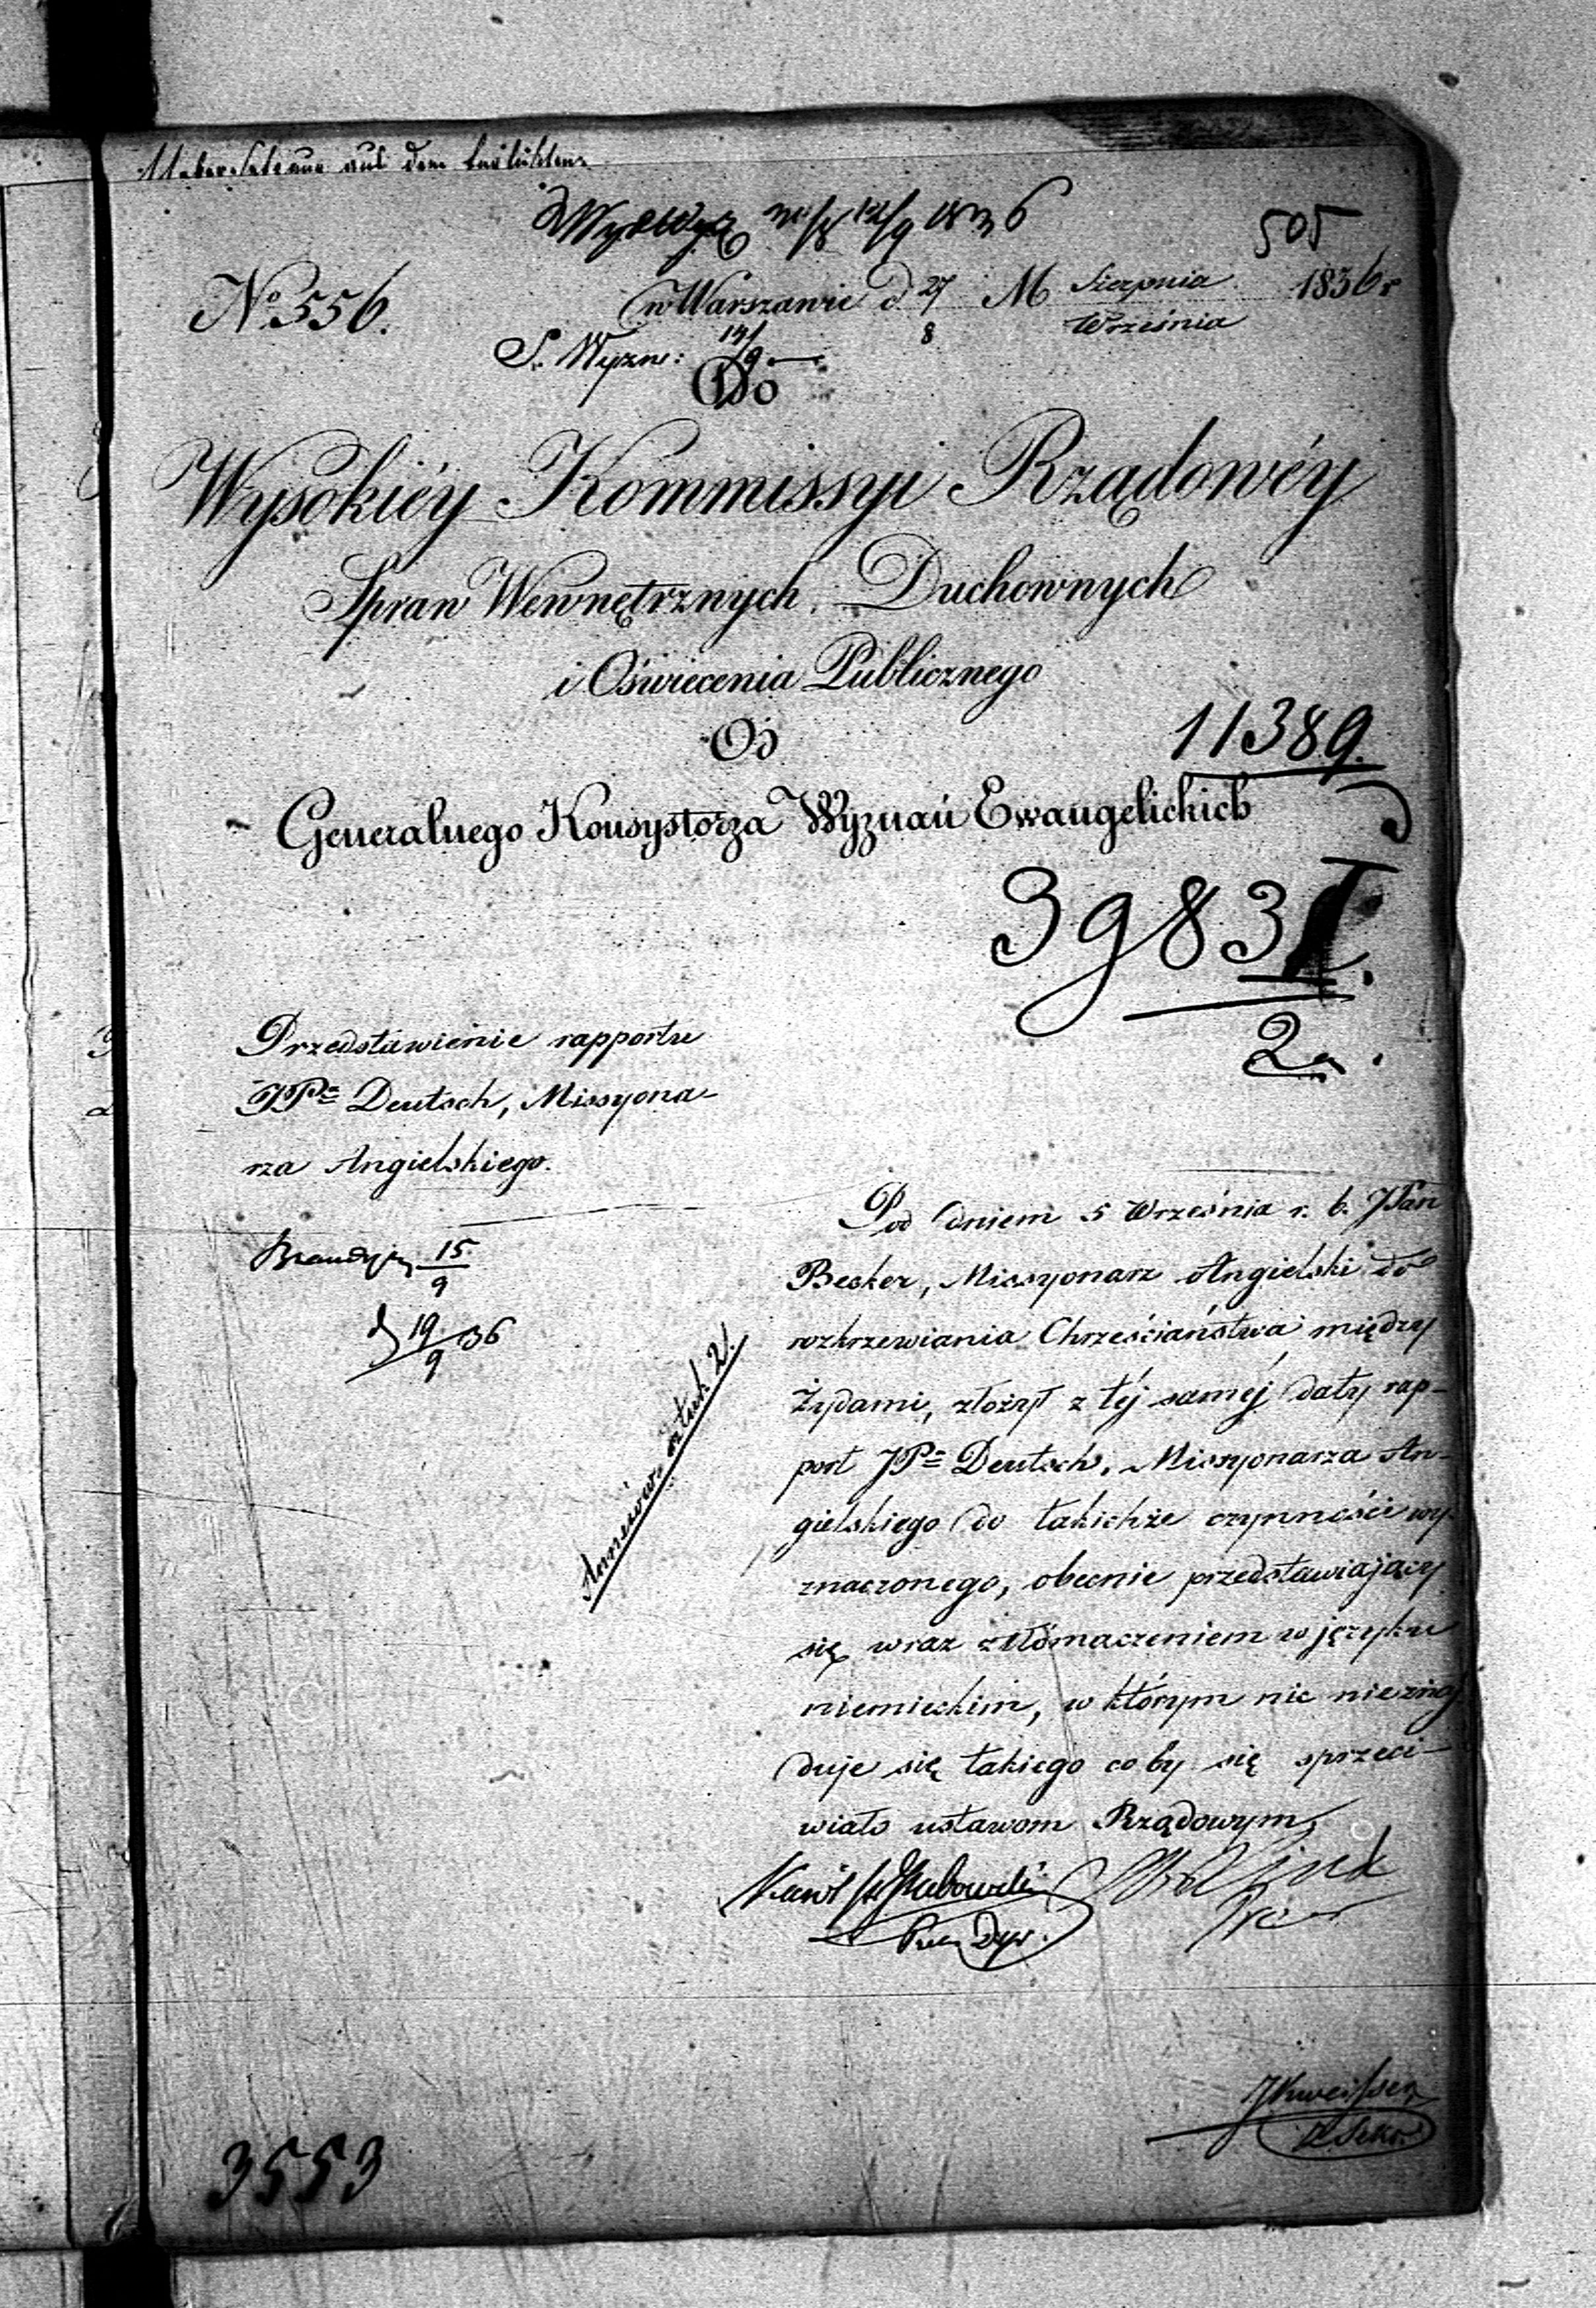 Uebersetzung aus dem Englischen
31/8 12/9 1836
505
No 556.
w Warszawie d 27/8 M Sierpnia/Września 1836 r
S. Wyzn: 14/9
Do
Wysokiéy Kommissyi Rządowéy
Spraw Wewnętrznych, Duchownych
i Oświecenia Publicznego
Od
11389.
Generalnego Konsystorza Wyznań Ewangelickich
3983
2
Przedstawienie rapportu
JPa Deutsch, Missyona-
rza Angielskiego.
15/9
19/9 36
sztuk 2.
Pod dniem 5 Września r. b. JPan
Becker, Missyonarz Angielski do
rozkrzewiania Chrześciaństwa między
Żydami, złożył z téj saméj daty rap-
port JPa Deutsch, Missyonarza An-
gielskiego do takichże czynności wy-
znaczonego, obecnie przedstawiający
się wraz z tłómaczeniem w języku
niemieckim, w którym nic nieznaj
duje się takiego co by się sprzeci-
wiało ustawom Rządowym,
Dyr.
Sekr.
3553